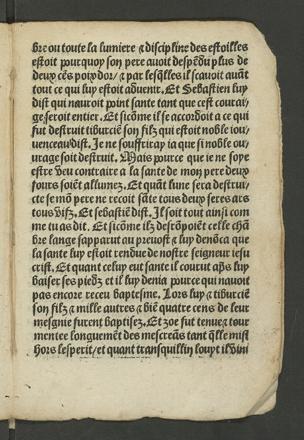 bre ou toute la lumiere ⁊ discipline des estoilles
estoit pourquoy son pere auoit despēdu plus de
deux cēs poix dor/ ⁊ par lesq̄lles il scauoit auāt
tout ce qui luy estoit aduenir. Et Sebastien luy
dist qui nauroit point sante tant que cest courai/
ge seroit entier. Et sicōme il se accordoit a ce qui
fut destruit tiburcie son filz qui estoit noble iou/
uenceau dist. Je ne souffriray ia que si noble ou/
urage soit destruit. Mais pource que ie ne soye
estre veu contraire a la sante de mon pere deux
fours soiēt allumez. Et quāt lune sera destrui/
cte se mō pere ne recoit sāte tous deux seres ars
tous vifz. Et sebastiē dist. Il soit tout ainsi com
me tu as dit. Et sicōme ilz desrōpoiēt celle chā
bre lange sapparut au preuost ⁊ luy denōca que
la sante luy estoit rendue de nostre seigneur iesu
crist. Et quant celuy eut sante il courut ap̄s luy
baiser ses piedz et il luy denia pource qui nauoit
pas encore receu baptesme. Lors luy ⁊ tiburcie
son filz ⁊ mille autres ⁊ biē quatre cens de leur
mesgnie furent baptisez. Et zoe fut tenue ⁊ tour
mentee longuemēt des mescreās tant q̄lle mist
hors lesperit/ et quant tranquillin louyt il vint